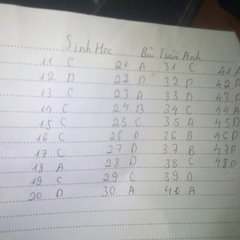 Sinh Học Bù Xuân Anh
11 C 21 A 31 C 41 A
12 D 22 D 32 D 42 D
13 C 23 A 33 D 43 D
14 C 24 B 34 C 44 A
15 C 25 C 35 A 45 D
16 C 26 D 36 B 46 D
17 C 27 D 37 B 47 D
18 A 28 D 38 C 48 D
19 C 29 C 39 D
20 D 30 A 40 A